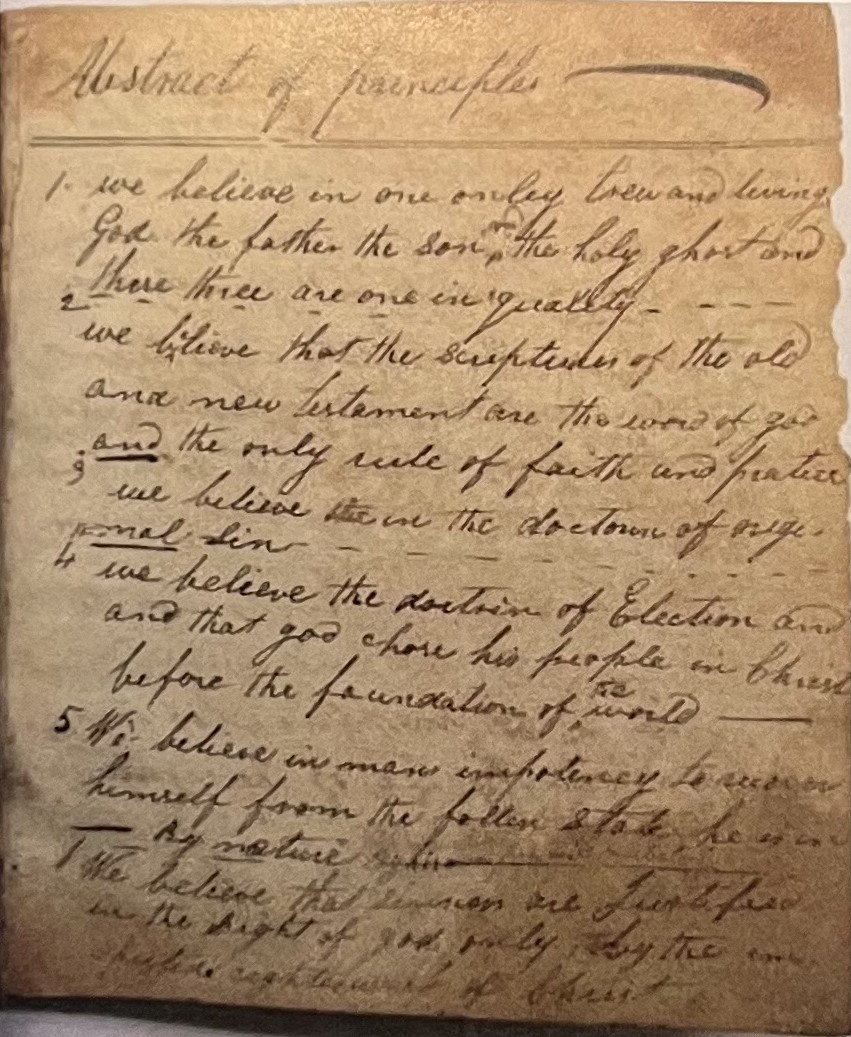 Abstract of principles
1. we believe in one onley trew and living
God the father the son and the holy ghost and
these three are one in quality - - - -
2 we believe that the scriptures of the old
and new testament are the word of god
and the only rule of faith and pratice
3 we believe in the doctown of orige-
nal sin - - - -
4 we believe the doctrin of Election and
and that god chose his people in Christ
before the foundation of the world
5 We believe in mans impotency to
himself from the fallen state he is in
By nature
We believe that sinners are Justified
in the sight of god only by the im-
righteousness of Christ